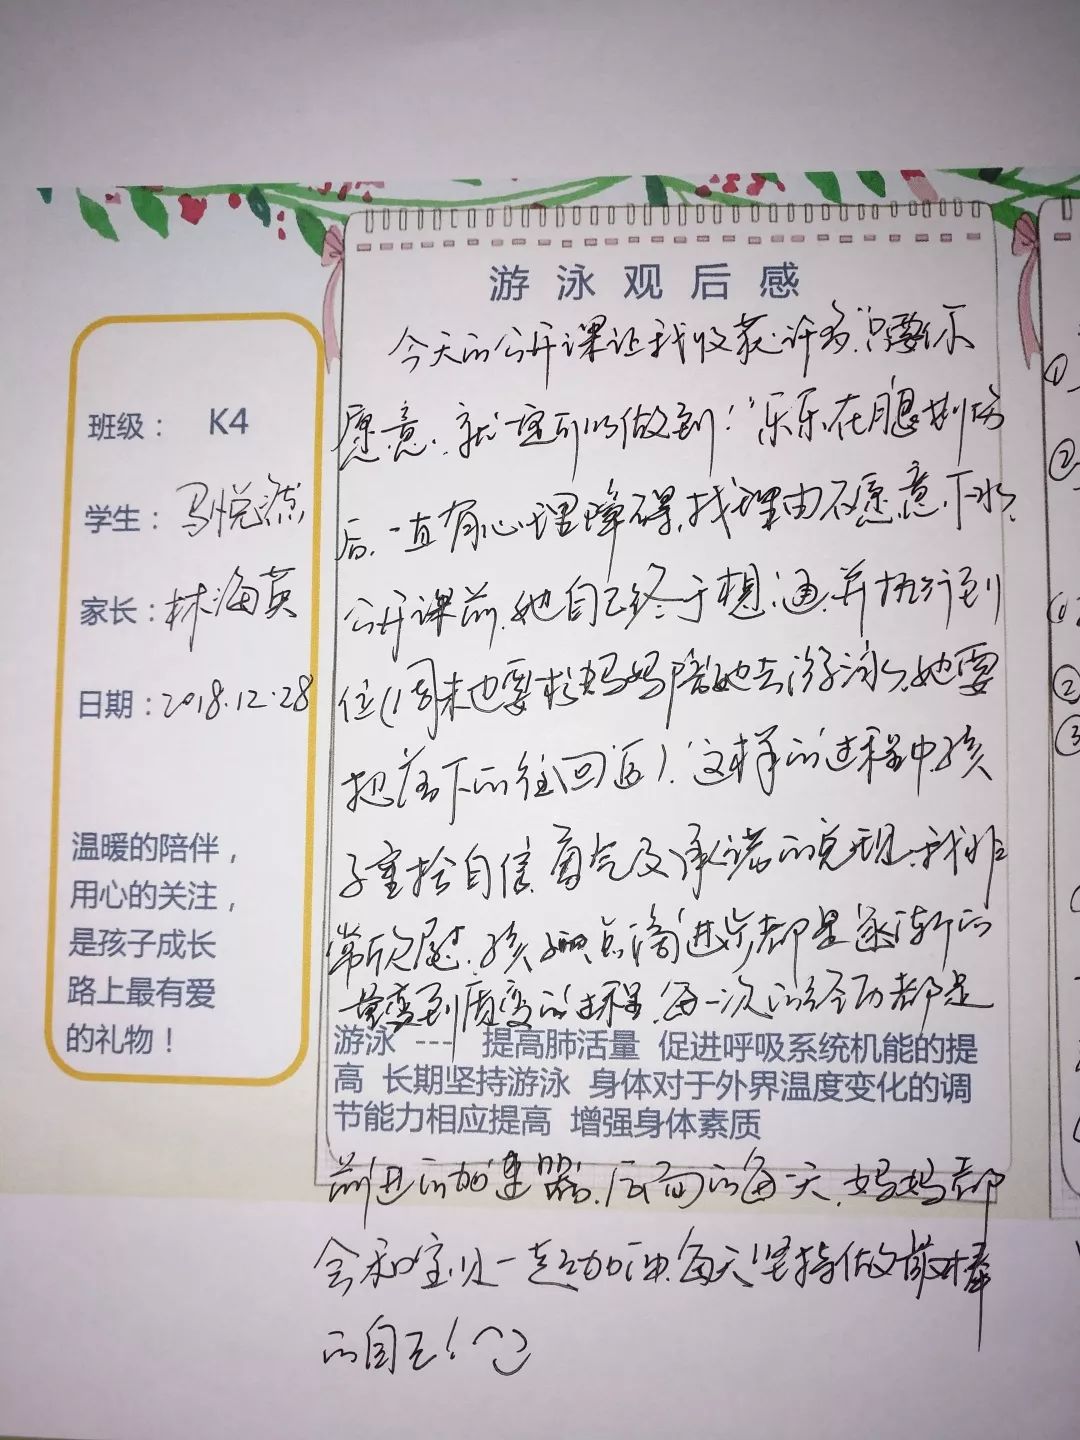 游泳观后感
班级： K4
学生：马悦
家长：林海英
日期：2018.12.28
温暖的陪伴，
用心的关注，
是孩子成长
路上最有爱
的礼物！
今天的公开课让我收获许多，"只要你
愿意，就一定可以做到！"乐乐在腿
后，一直有心理障碍，找理由不愿意下水，
公开课前，她自己终于想通，并执行到
位（周末也要求妈妈陪她去游泳，她要
把落下的往回追）。这样的过程中，孩
子重拾自信、勇气及承诺的兑现，我非
常欣慰，孩点滴进步都是逐渐的
量变到质变的过程，每一次的经历都是
游泳 --- 提高肺活量 促进呼吸系统机能的提
高 长期坚持游泳 身体对于外界温度变化的调
节能力相应提高 增强身体素质
前进的加速器，后面的每一天，妈妈都
会和宝贝一起加油，每天坚持做最棒
的自己！
①
②
①
②
③